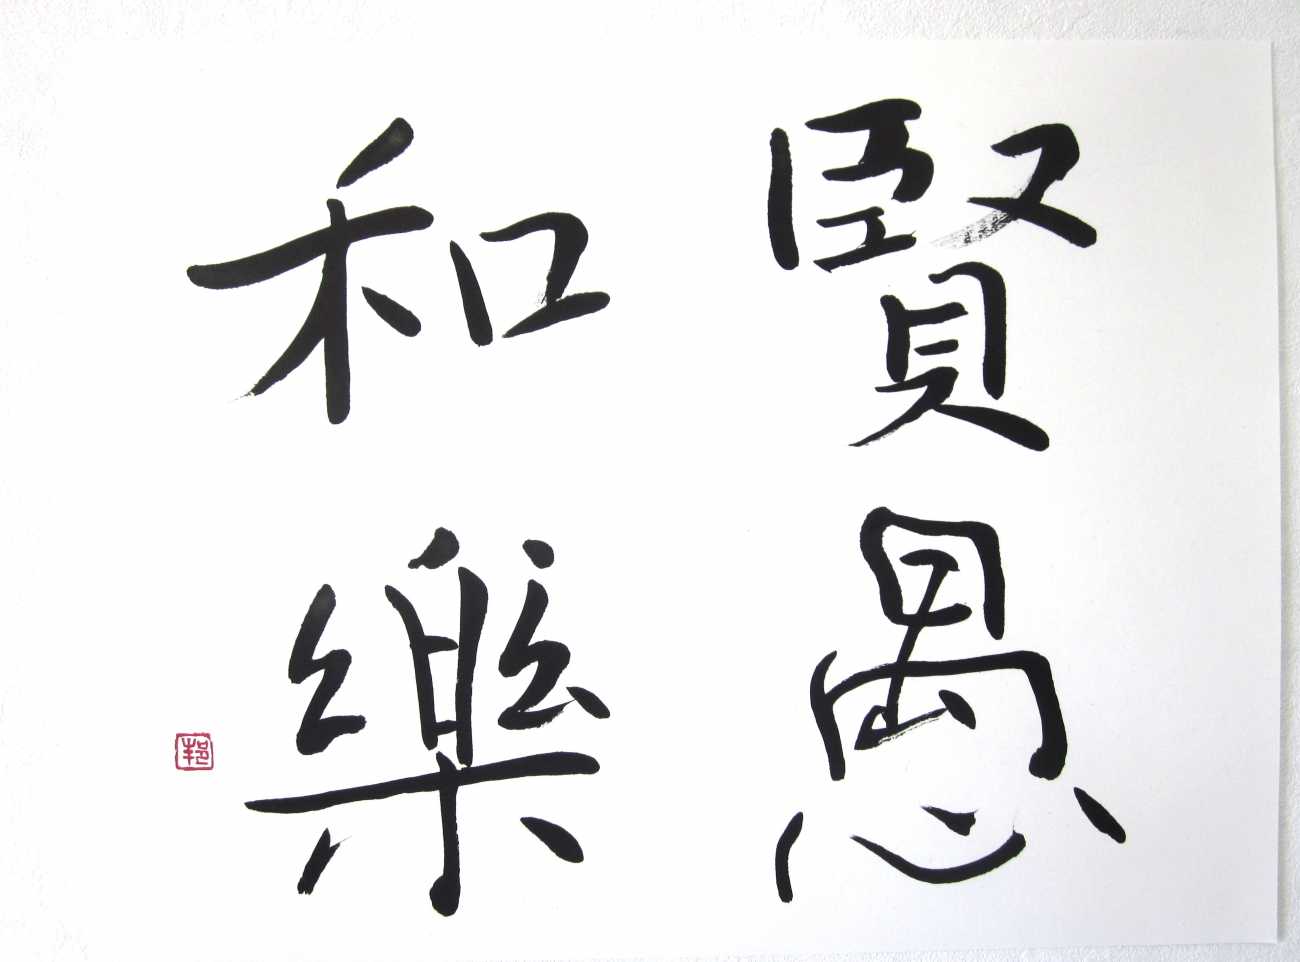 賢愚
和樂
邦